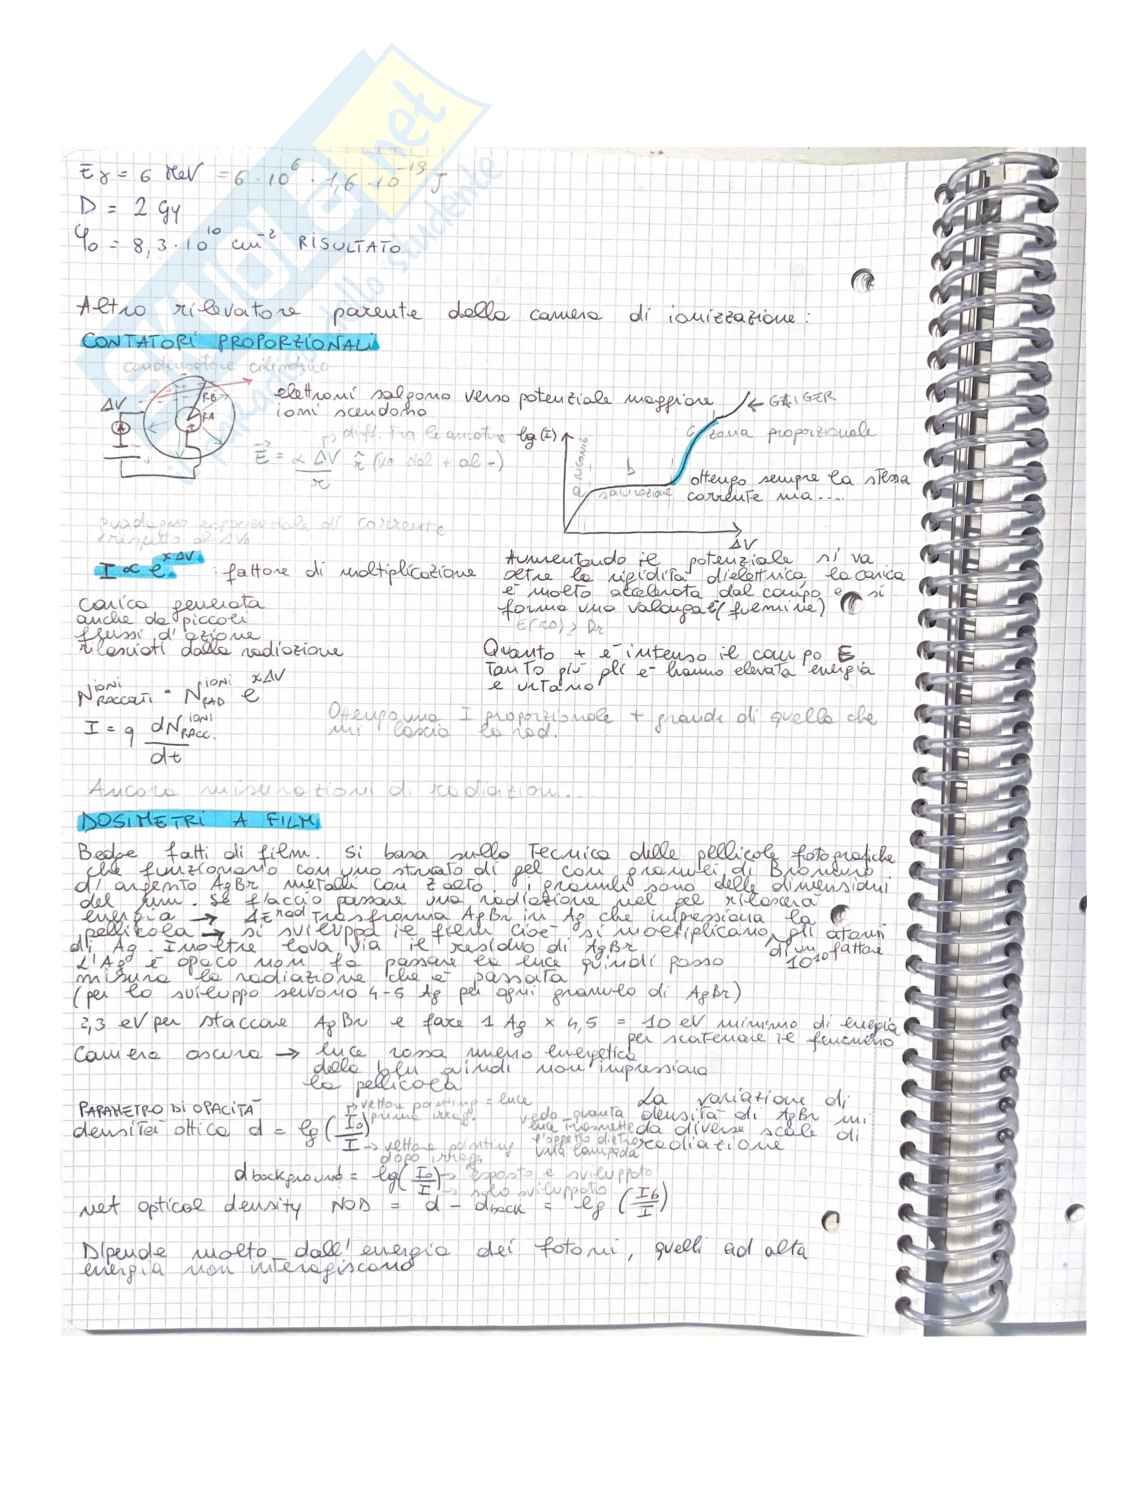 Eγ = 6 MeV = 6 · 10^6 · 1,6 · 10^-19 J
D = 2 Gy
φ0 = 8,3 · 10^10 cm^-2 RISULTATO
Altro rilevatore parente della camera di ionizzazione:
CONTATORI PROPORZIONALI
condensatore cilindrico
ΔV
RB
RA
A
elettroni salgono verso potenziale maggiore
ioni scendono
diff. tra le
E = α ΔV / r r̂ (va dal + al -)
lg(I)
← GEIGER
c zona proporzionale
b
a
saturazione
ottengo sempre la stessa
corrente ma....
ΔV
esponenziale di corrente
rispetto al ΔV
I ∝ e^xΔV : fattore di moltiplicazione
Aumentando il potenziale si va
oltre la rigidità dielettrica, la carica
è molto accelerata dal campo e si
forma una valanga (fulmine)
Carica generata
anche da piccoli
flussi d'azione
rilasciati dalla radiazione
Quanto + è intenso il campo E
tanto più gli e- hanno elevata energia
e urtano
N^IONI RACCOLTI = N^IONI RAD e^xΔV
I = q dN^IONI RACC. / dt
Ottengo una I proporzionale + grande di quella che
mi lascia la rad.
Ancora misurazioni di radiazioni...
DOSIMETRI A FILM
Badge fatti di film. Si basa sulla tecnica delle pellicole fotografiche
che funzionano con uno strato di gel con granuli di Bromuro
d'argento AgBr metalli con Z alto. I granuli sono delle dimensioni
del μm. Se faccio passare una radiazione nel gel rilascerà
energia → ΔE rad trasforma AgBr in Ag che impressiona la
pellicola → si sviluppa il film cioè si moltiplicano gli atomi
di Ag. Inoltre lava via il residuo di AgBr di un fattore
10^10
L'Ag è opaco non fa passare la luce quindi posso
misura la radiazione che è passata
(per lo sviluppo servono 4-5 Ag per ogni granulo di AgBr)
2,3 eV per staccare AgBr e fare 1 Ag × 4,5 = 10 eV minimo di energia
per scatenare il fenomeno
Camera oscura → luce rossa meno energetica
della blu quindi non impressiona
la pellicola
PARAMETRO DI OPACITÀ
densità ottica d = lg (I0 / I)
→ vettore poynting = luce
prima irragg.
→ vettore poynting
dopo irragg.
vedo quanta
luce trasmette
l'oggetto dietro
una lampada
La variazione di
densità di AgBr mi
da diverse scale di
radiazione
d background = lg (I0 / I) → esposto e sviluppato
→ solo sviluppato
net optical density NOD = d - d back = lg (Ib / I)
Dipende molto dall'energia dei fotoni, quelli ad alta
energia non interagiscono